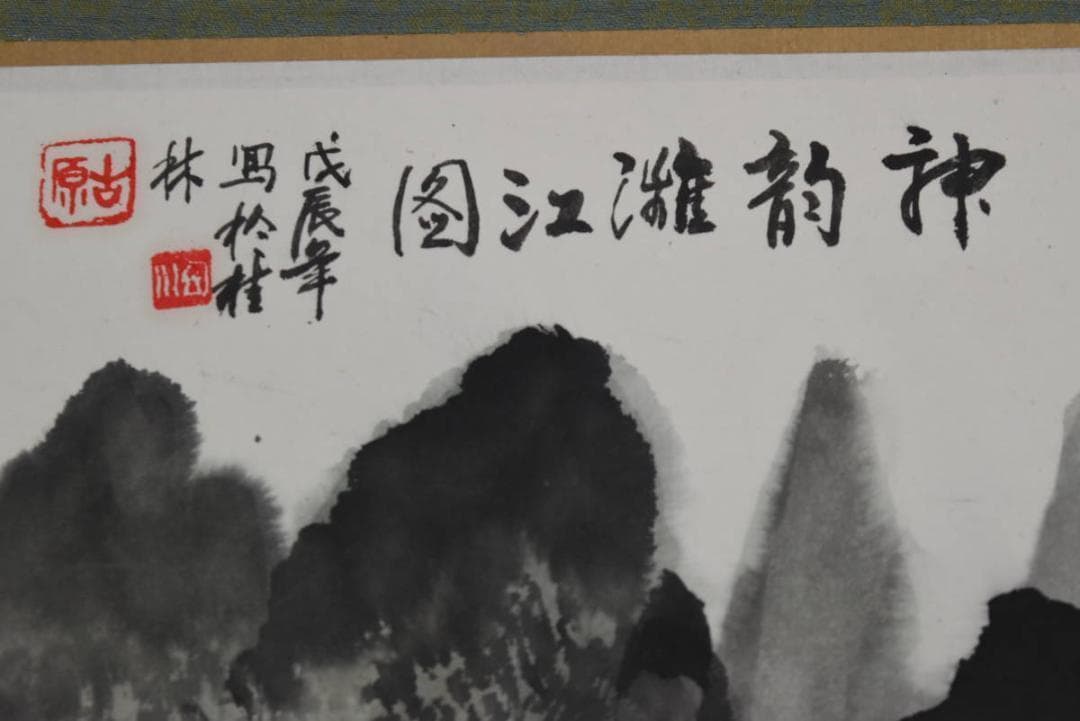 神韵漓江图
戊辰年
写於桂
林
古原